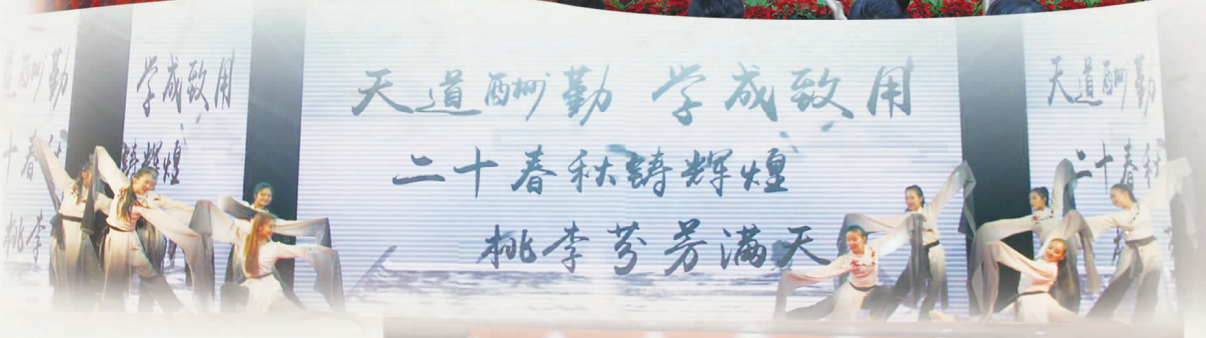 天道酬勤 学成致用
二十春秋铸辉煌
桃李芬芳满天
学成致用
铸辉煌
天道酬勤
二十春秋
道酬勤
十春秋
桃李